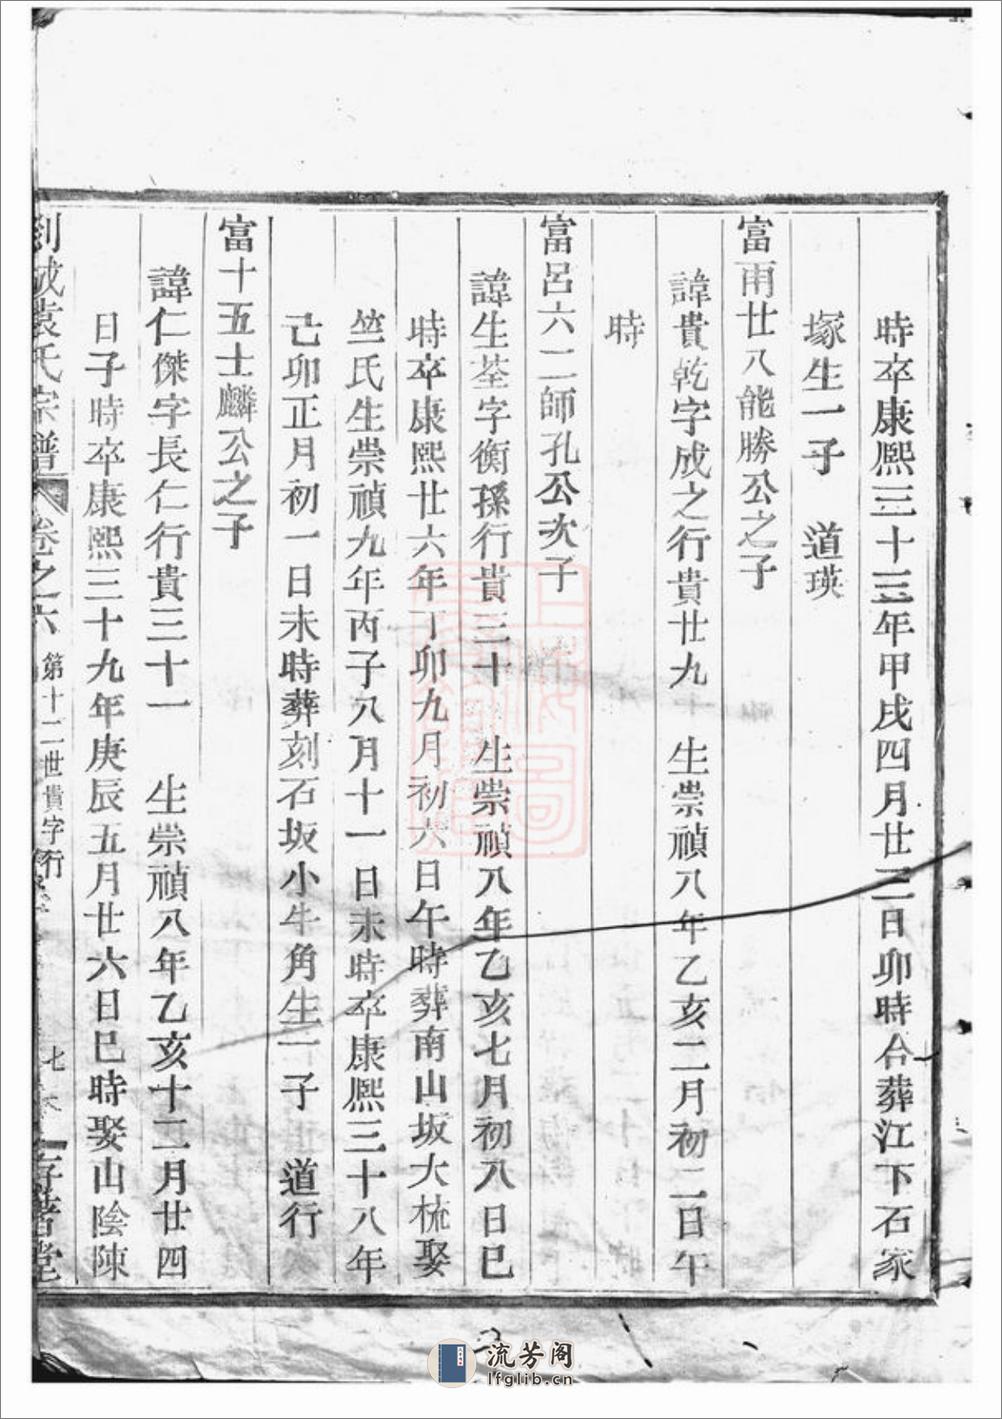 時卒康熙三十三年甲戌四月廿三日卯時合葬江下石家
塚生一子　道瑛
富雨廿八能勝公之子
諱貴乾字成之行貴廿九　生崇禎八年乙亥二月初二日午
時
富呂六二師孔公次子
諱生荃字衡孫行貴三十　生崇禎八年乙亥七月初八日巳
時卒康熙廿六年丁卯九月初六日午時葬南山坂大梳娶
竺氏生崇禎九年丙子八月十一日未時卒康熙三十八年
己卯正月初一日未時葬刻石坂小牛角生一子　道行
富十五士麟公之子
諱仁傑字長仁行貴三十一　生崇禎八年乙亥十二月廿四
日子時卒康熙三十九年庚辰五月廿六日巳時娶山陰陳
剡城袁氏宗譜 卷之六 第十二世貴字行 七
流芳阁
lfglib.cn